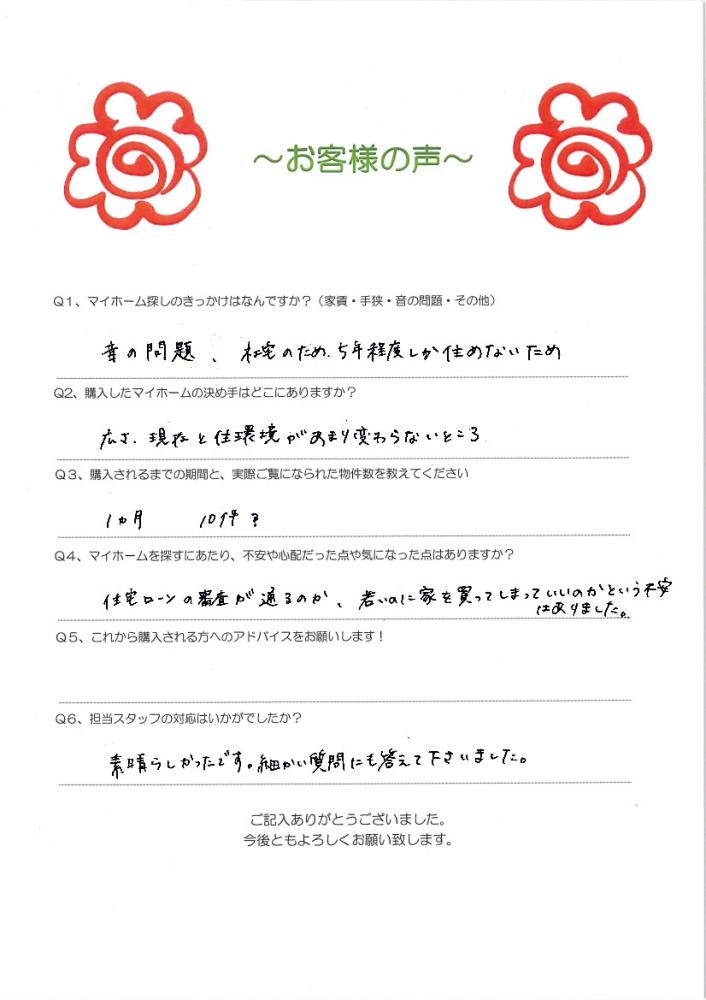 ～お客様の声～
Q1、マイホーム探しのきっかけはなんですか？（家賃・手狭・音の問題・その他）
音の問題、社宅のため、5年程度しか住めないため
Q2、購入したマイホームの決め手はどこにありますか？
広さ、現在と住環境があまり変わらないところ
Q3、購入されるまでの期間と、実際ご覧になられた物件数を教えてください
1ヵ月 10件？
Q4、マイホームを探すにあたり、不安や心配だった点や気になった点はありますか？
住宅ローンの審査が通るのか、若いのに家を買ってしまっていいのかという不安
はありました。
Q5、これから購入される方へのアドバイスをお願いします！
Q6、担当スタッフの対応はいかがでしたか？
素晴らしかったです。細かい質問にも答えて下さいました。
ご記入ありがとうございました。
今後ともよろしくお願い致します。